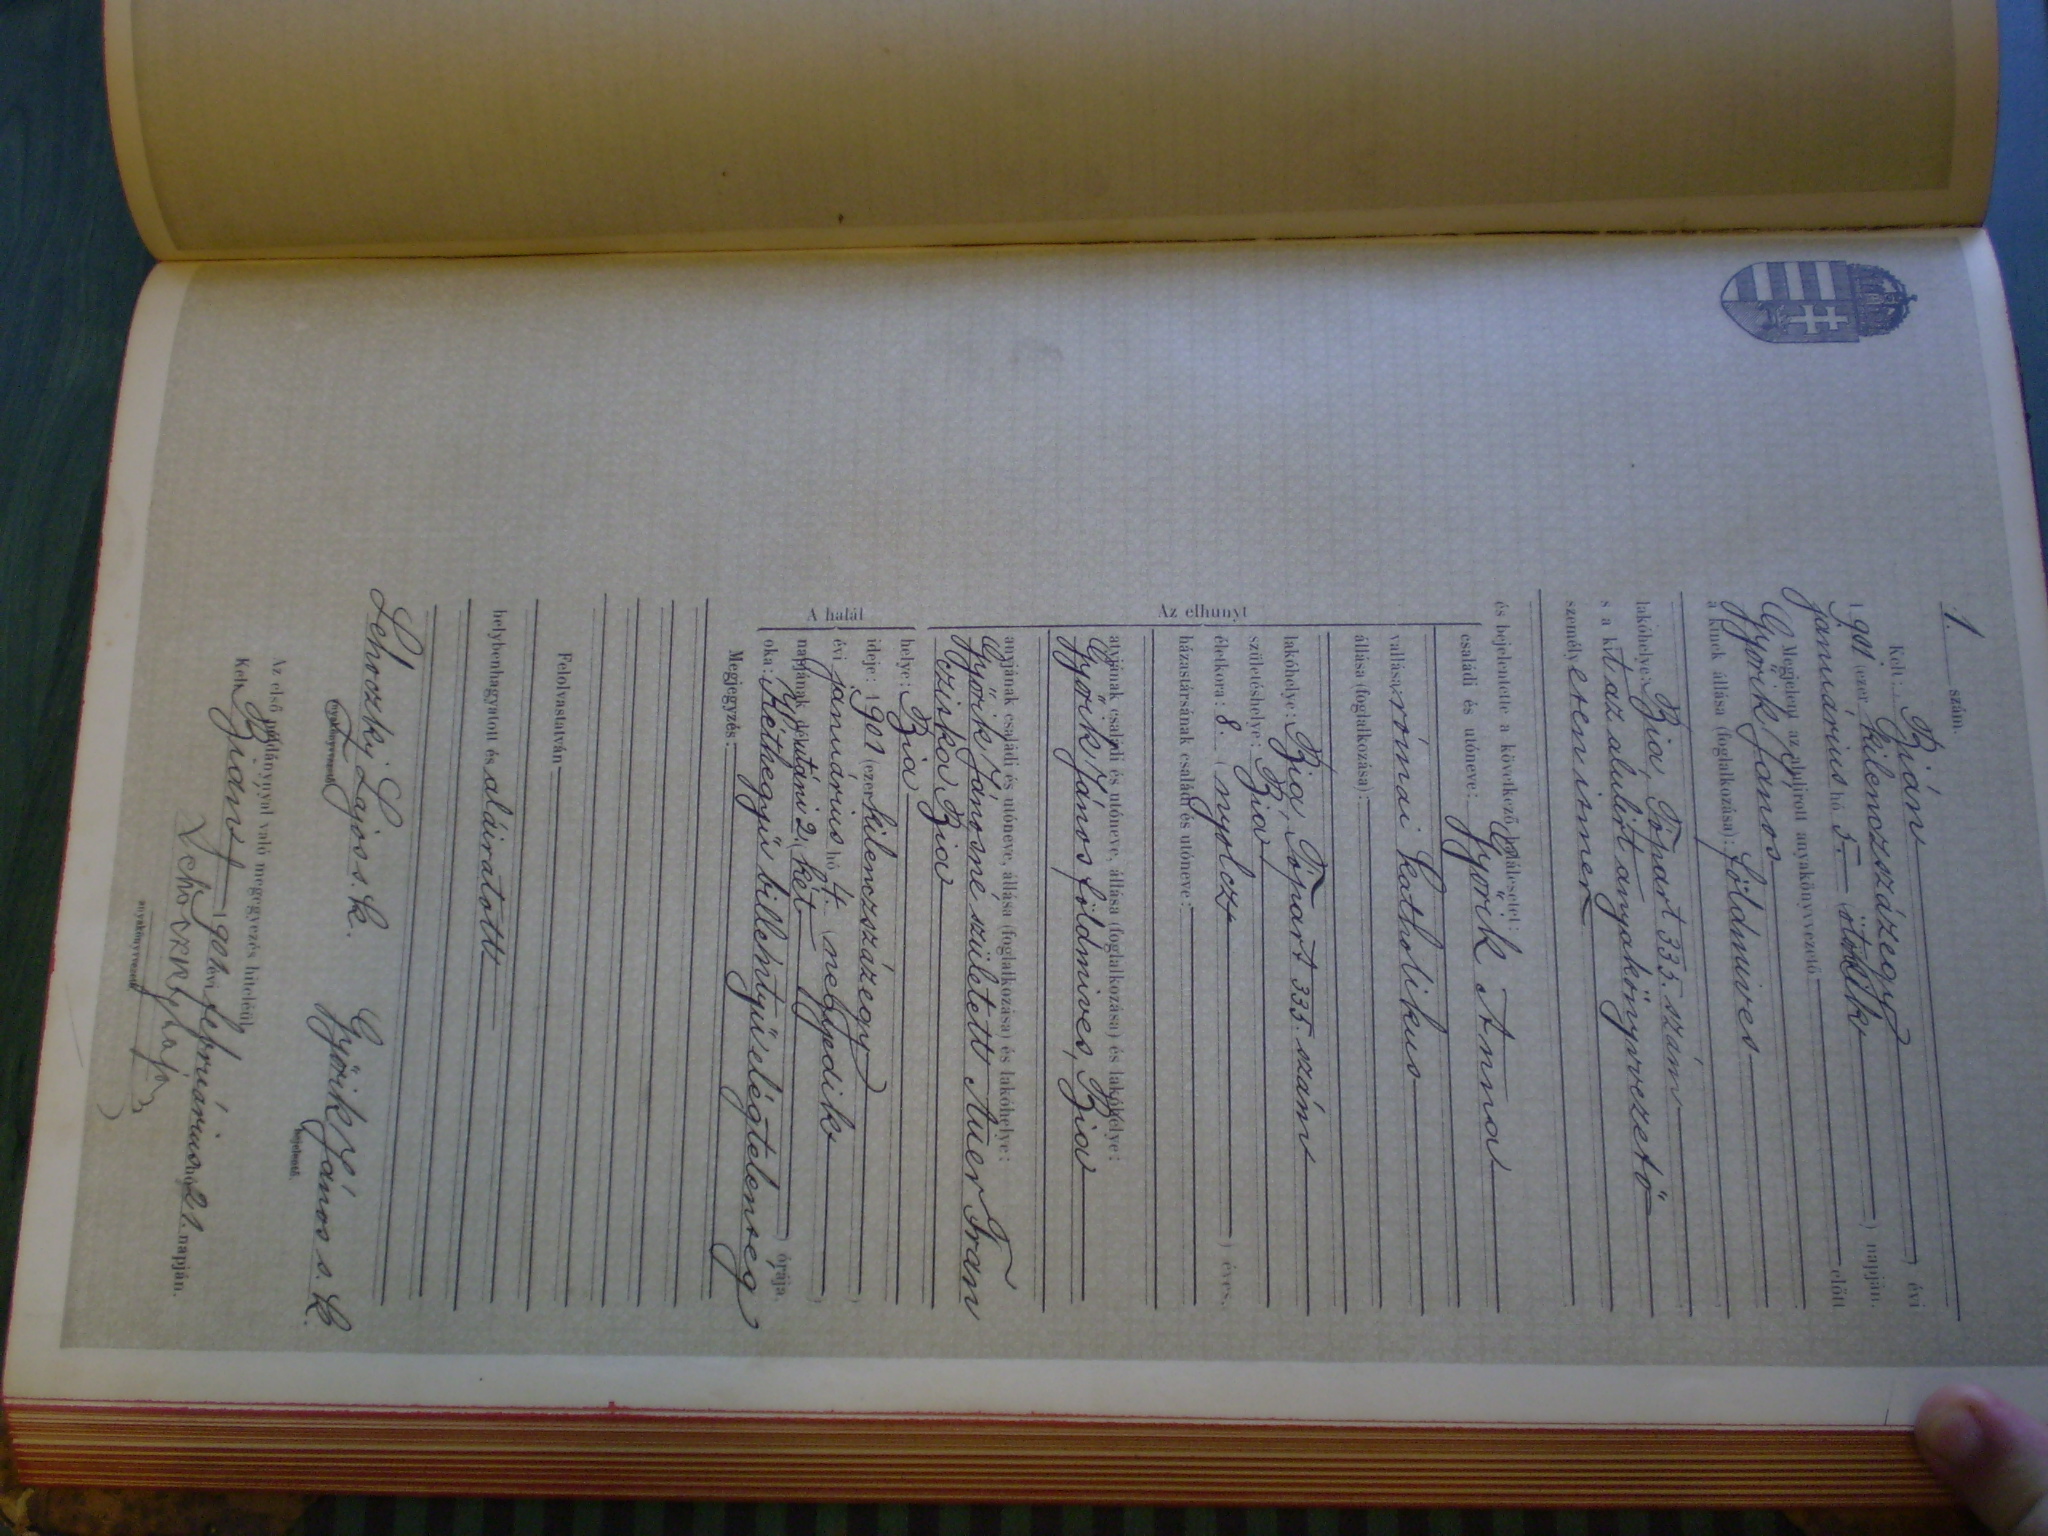 1. szám.
Kelt: Bián kilenczszázegy ) évi
1901 (ezer
januárius hó 5. (ötödik ) napján.
Megjelent az alulirott anyakönyvvezető előtt
Győrik János
a kinek állása (foglalkozása): földmives
lakóhelye: Bia, Tópart 335. szám
s a kit az alulirt anyakönyvvezető
személyesen ismer
és bejelentette a következő halálesetet:
Az elhunyt
családi és utóneve: Győrik Anna
vallása: római katholikus
állása (foglalkozása):
lakóhelye: Bia, Tópart 335. szám
születéshelye: Bia
életkora: 8. ( nyolcz ) éves.
házastársának családi és utóneve:
atyjának családi és utóneve, állása (foglalkozása) és lakóhelye:
Győrik János földmives, Bia
anyjának családi és utóneve, állása (foglalkozása) és lakóhelye:
Győrik Jánosné született Auer Fran
cziska Bia
A halál
helye: Bia
ideje: 1901 (ezer kilenczszázegy )
évi januárius hó 4. ( negyedik )
napjának délutáni 2. ( két ) órája.
oka: Kéthegyü billentyü elégtelenség
Megjegyzés:
Felolvastatván
helybenhagyatott és aláiratott
Lehoczky Lajos s. k. Győrik János s. k.
anyakönyvvezető bejelentő.
Az első példánynyal való megegyezés hiteléül
Kelt Bián 1901 évi február hó 21. napján.
Lehoczky Lajos
anyakönyvvezető